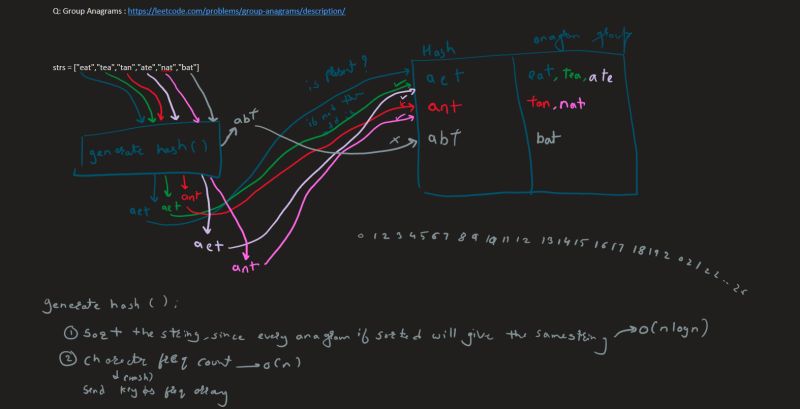 Q: Group Anagrams : https://leetcode.com/problems/group-anagrams/description/
strs = ["eat","tea","tan","ate","nat","bat"]
is present?
if not then add it
Hash
anagram group
aet
eat, tea, ate
ant
tan, nat
abt
bat
abt
generate hash()
aet
aet
ant
aet
ant
0 1 2 3 4 5 6 7 8 9 10 11 12 13 14 15 16 17 18 19 2 0 2 1 2 2 ... 26
generate hash():
① Sort the string, since every anagram if sorted will give the same string → O(n logn)
② charecter freq count → o(n)
(hash)
send key as freq array